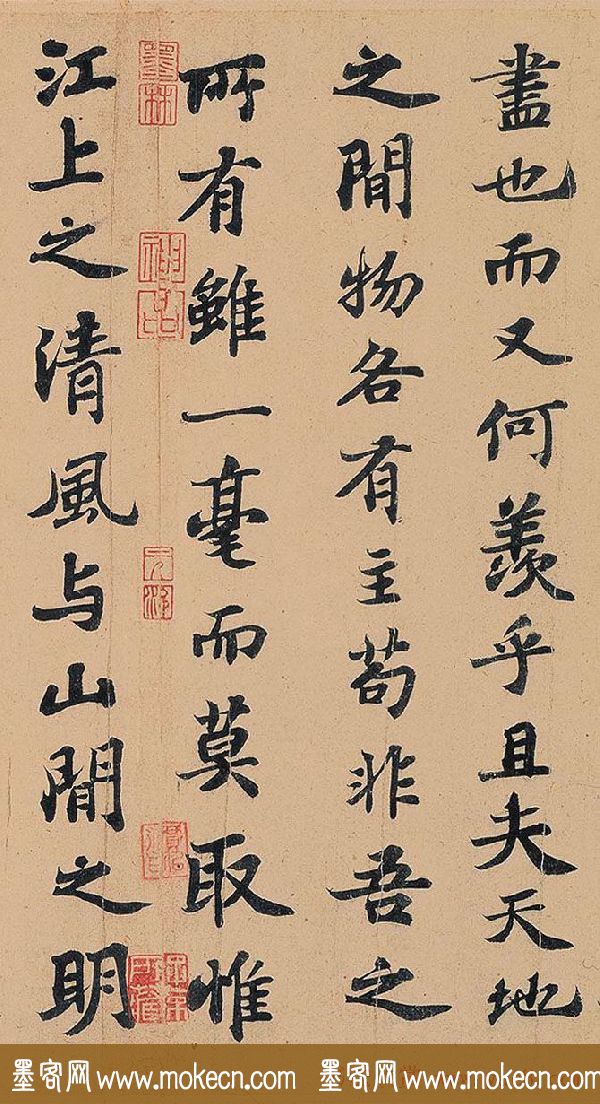 盡也而又何羨乎且夫天地
之間物各有主苟非吾之
所有雖一毫而莫取惟
江上之清風与山間之明
墨客网 www.mokecn.com 墨客网 www.mokecn.com